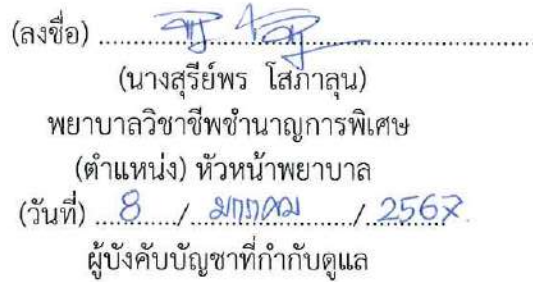 (ลงชื่อ) ........................................................
(นางสุรีย์พร โสภาลุน)
พยาบาลวิชาชีพชำนาญการพิเศษ
(ตำแหน่ง) หัวหน้าพยาบาล
(วันที่) 8 / มกราคม / 2567
ผู้บังคับบัญชาที่กำกับดูแล